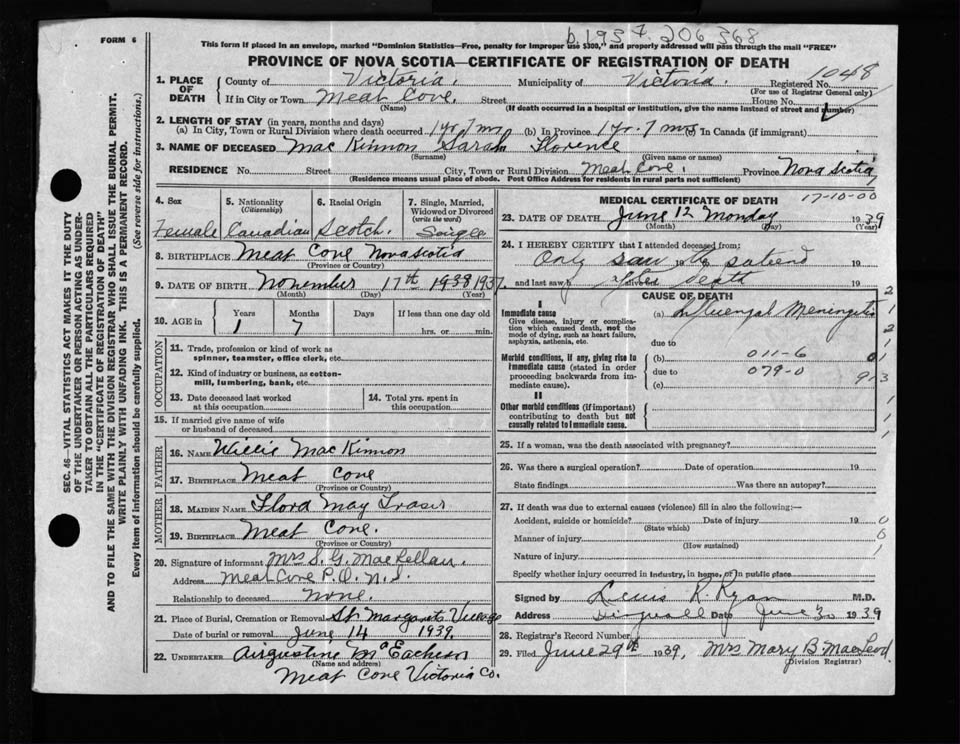 b.1937. 206368
FORM 6
This form if placed in an envelope, marked "Dominion Statistics—Free, penalty for improper use $300," and properly addressed will pass through the mail "FREE"
PROVINCE OF NOVA SCOTIA—CERTIFICATE OF REGISTRATION OF DEATH
SEC. 46—VITAL STATISTICS ACT MAKES IT THE DUTY
OF THE UNDERTAKER OR PERSON ACTING AS UNDER-
TAKER TO OBTAIN ALL THE PARTICULARS REQUIRED
IN THE "CERTIFICATE OF REGISTRATION OF DEATH"
AND TO FILE THE SAME WITH THE DIVISION REGISTRAR WHO SHALL ISSUE THE BURIAL PERMIT.
WRITE PLAINLY WITH UNFADING INK. THIS IS A PERMANENT RECORD.
Every item of information should be carefully supplied. (See reverse side for instructions.)
1. PLACE OF DEATH
County of Victoria. Municipality of Victoria. Registered No. 1048
(For use of Registrar General only)
If in City or Town Meat Cove. Street House No.
(Name) (If death occurred in a hospital or institution, give the name instead of street and number)
2. LENGTH OF STAY (in years, months and days)
(a) In City, Town or Rural Division where death occurred 1 yr 7 mos (b) In Province 1 yr. 7 mos (c) In Canada (if immigrant)
3. NAME OF DECEASED Mac Kinnon Sarah Florence
(Surname) (Given name or names)
RESIDENCE No. Street City, Town or Rural Division Meat Cove. Province Nova Scotia
(Residence means usual place of abode. Post Office Address for residents in rural parts not sufficient)
4. Sex Female
5. Nationality (Citizenship) Canadian
6. Racial Origin Scotch.
7. Single, Married, Widowed or Divorced (write the word) Single
8. BIRTHPLACE Meat Cove Nova Scotia
(Province or Country)
9. DATE OF BIRTH November 17th 1938 1937.
(Month) (Day) (Year)
10. AGE in Years 1 Months 7 Days If less than one day old hrs. or min.
OCCUPATION
11. Trade, profession or kind of work as spinner, teamster, office clerk, etc.
12. Kind of industry or business, as cotton-mill, lumbering, bank, etc.
13. Date deceased last worked at this occupation
14. Total yrs. spent in this occupation
15. If married give name of wife or husband of deceased
FATHER
16. NAME Willie Mac Kinnon
17. BIRTHPLACE Meat Cove
(Province or Country)
MOTHER
18. MAIDEN NAME Flora May Fraser
19. BIRTHPLACE Meat Cove.
(Province or Country)
20. Signature of informant Mrs S. G. MacLellan.
Address Meat Cove P.O. N.S.
Relationship to deceased None.
21. Place of Burial, Cremation or Removal St Margarets Village
Date of burial or removal June 14 1939.
22. UNDERTAKER Augustine McEachern
(Name and address)
Meat Cove Victoria Co.
MEDICAL CERTIFICATE OF DEATH 17-10-00
23. DATE OF DEATH June 12 Monday 1939
(Month) (Day)
24. I HEREBY CERTIFY that I attended deceased from:
Only saw 19 the patient 19
and last saw h alive on after death 19
CAUSE OF DEATH
I
Immediate cause
Give disease, injury or complication which caused death, not the mode of dying, such as heart failure, asphyxia, asthenia, etc.
(a) Influenzal Meningitis
due to
Morbid conditions, if any, giving rise to immediate cause (stated in order proceeding backwards from immediate cause).
(b) 011-6
due to 079-0 9-3
(c)
II
Other morbid conditions (if important) contributing to death but not causally related to immediate cause.
25. If a woman, was the death associated with pregnancy?
26. Was there a surgical operation? Date of operation 19
State findings Was there an autopsy?
27. If death was due to external causes (violence) fill in also the following:—
Accident, suicide or homicide? Date of injury 19
(State which)
Manner of injury
(How sustained)
Nature of injury
Specify whether injury occurred in industry, in home, or in public place
Signed by R. Ryan M.D.
Address Dingwall Date June 30 1939
28. Registrar's Record Number
29. Filed June 29th 1939, Mrs Mary B. MacLeod.
(Division Registrar)